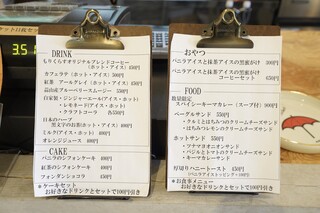 DRINK
もりくらすオリジナルブレンドコーヒー
(ホット・アイス) 450円
カフェラテ(ホット・アイス) 500円
紅茶 アールグレイ(ホット・アイス) 450円
高山産ブルーベリースムージー 550円
自家製・ジンジャーエール(ホット・アイス)
・レモネード(ホット・アイス)
・クラフトコーラ 各550円
日本のハーブ
黒文字のお茶(ホット・アイス) 400円
ミルク(アイス・ホット) 400円
オレンジジュース 400円
CAKE
バニラのシフォンケーキ 400円
紅茶のシフォンケーキ 400円
フォンダンショコラ 450円
*ケーキセット
お好きなドリンクとセットで100円引き
おやつ
バニラアイスと抹茶アイスの黒蜜がけ 300円
バニラアイスと抹茶アイスの黒蜜がけ
コーヒーセット 650円
FOOD
数量限定
スパイシーキーマカレー(スープ付) 900円
ベーグルサンド 550円
・くるみとはちみつのクリームチーズサンド
・はちみつレモンのクリームチーズサンド
ホットサンド 550円
・ツナマヨオニオンサンド
・バジルとトマトのクリームチーズサンド
・キーマカレーサンド
厚切りハニートースト 450円
(バニラアイストッピング +100円)
*お食事メニュー
お好きなドリンクとセットで100円引き